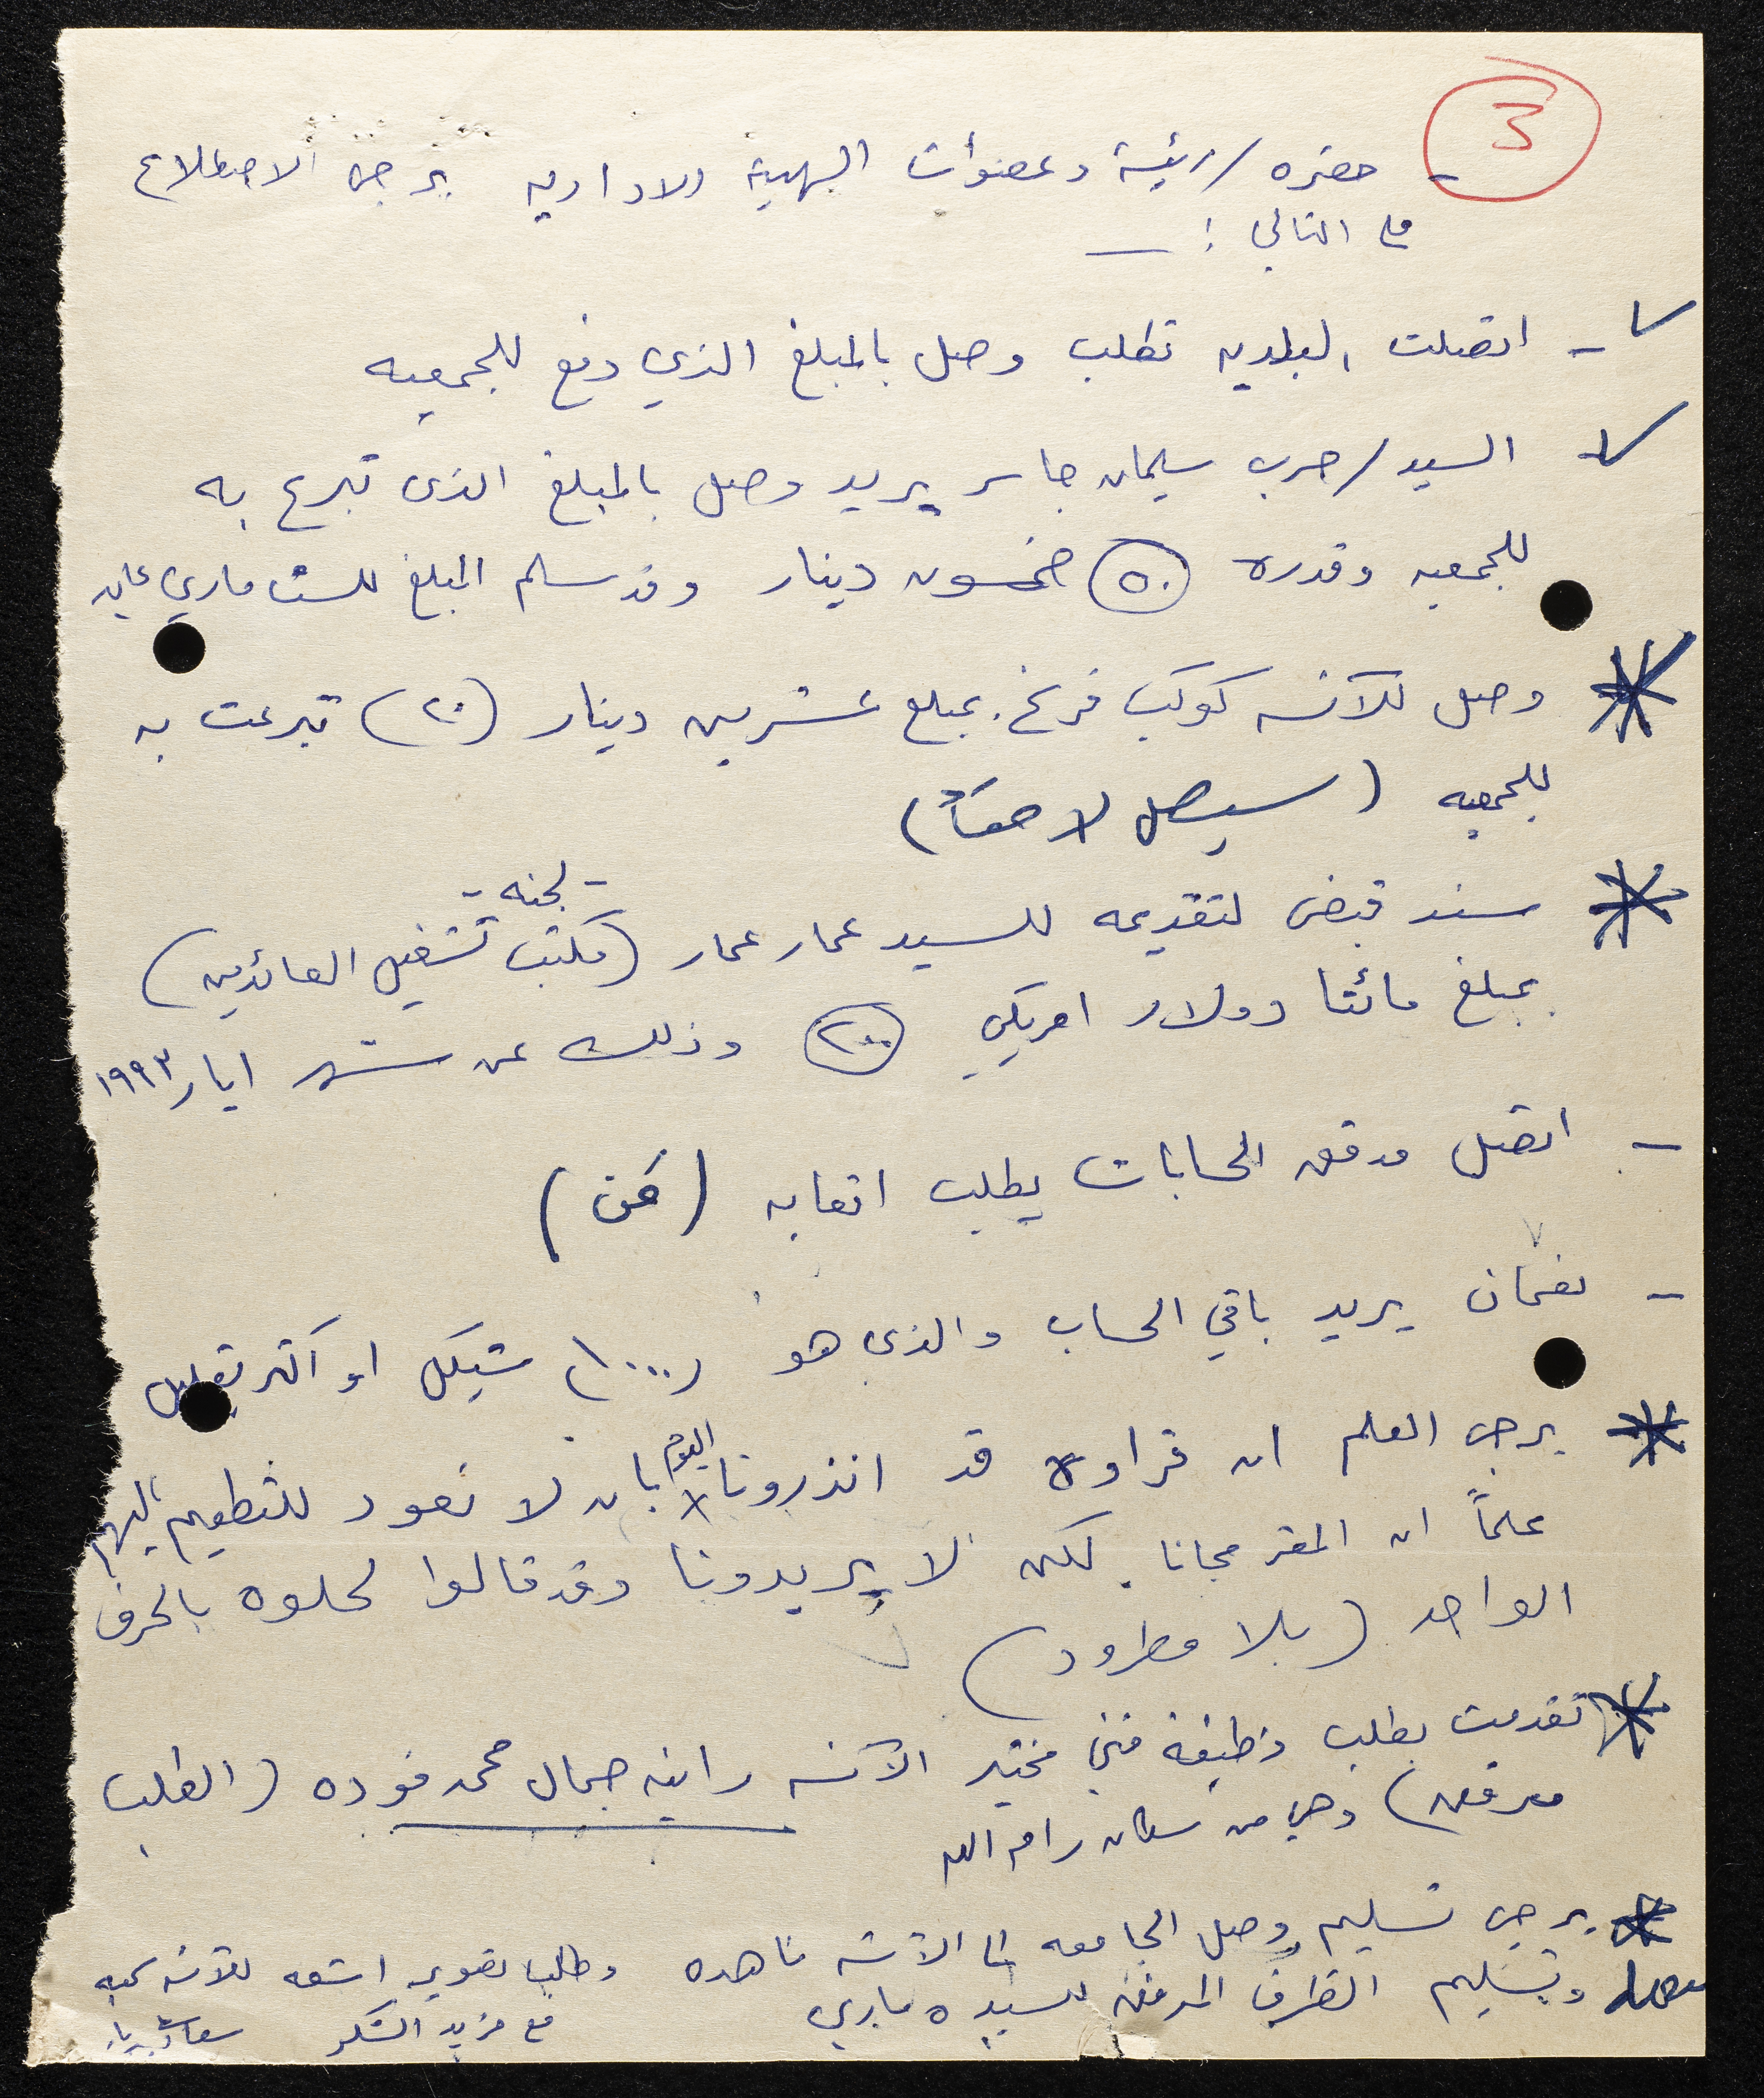 3
- حضره / رئيسة وعضوات الهيئة الاداريه يرجى الاطلاع
على التالي : ــ
- اتصلت البلديه تطلب وصل بالمبلغ الذي دفع للجمعيه
- السيد / حرب سليمان جاسر يريد وصل بالمبلغ الذي تبرع به
للجمعيه وقدره (٥٠) خمسون دينار وقد سلم المبلغ للست ماري
* وصل للآنسه كوكب فرنخ. بمبلغ عشرين دينار (٢٠) تبرعت به
للجمعيه (سيصل لاحقاً)
- لجنه -
* سند قبض لتقديمه للسيد عمار عمار (مكتب تشغيل العائدين)
بمبلغ مائتا دولار امريكي (٢٠٠) وذلك عن شهر ايار ١٩٩٣
- اتصل مدقق الحسابات يطلب اتعابه
- نعمان يريد باقي الحساب والذي هو (١٠٠٠) شيكل او اكثر بقليل
* يرجى العلم ان قراوه قد انذرونا اليوم بان لا نعود للتطعيم اليهم
علماً ان المقر مجانا. لكن لا يريدونا وقد قالوا لحلوه بالحرف
الواحد (بلا مطرود)
* تقدمت بطلب وظيفة فني مختبر الآنسه رانيه جمال محمد فوده (الطلب
مرفق) وهي من سكان رام الله
* يرجى تسليم وصل الجامعه الى الآنسه ناهده وطلب تصوير اشعه للآنسه
وتسليم الظرف المرفق للسيده ماري
مع مزيد الشكر